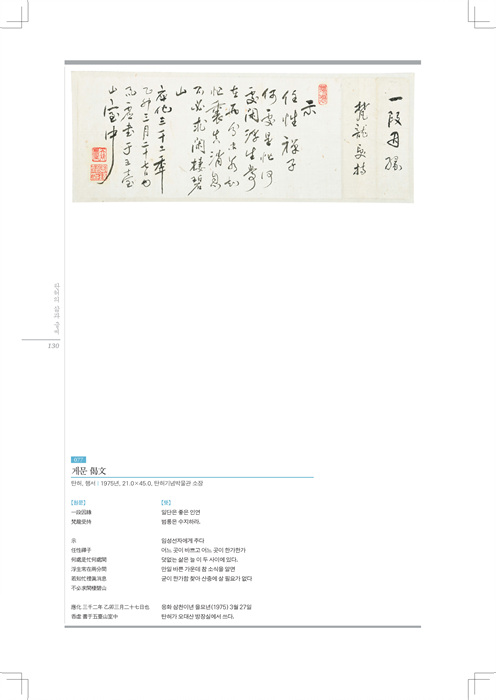 一段因緣
梵龍受持
示
任性禪子
何處是忙何
處閑浮生常
在兩分間若知
忙裏真消息
不必求閑棲碧
山
應化三千二年
乙卯三月二十七日也
呑虛書于五臺
山室中
탄허의 삶과
130
077
게문 偈文
탄허, 행서 | 1975년, 21.0×45.0, 탄허기념박물관 소장
[原文]
一段因緣
梵龍受持
示
任性禪子
何處是忙何處閒
浮生常在兩分間
若知忙裡眞消息
不必求閒棲碧山
應化 三千二年 乙卯三月二十七日也
呑虛 書于五臺山室中
일단은 좋은 인연
범룡은 수지하라.
임성선자에게 주다
어느 곳이 바쁘고 어느 곳이 한가한가
덧없는 삶은 늘 이 두 사이에 있다.
만일 바쁜 가운데 참 소식을 알면
굳이 한가함 찾아 산중에 살 필요가 없다
응화 삼천이년 을묘년(1975) 3월 27일
탄허가 오대산 방장실에서 쓰다.